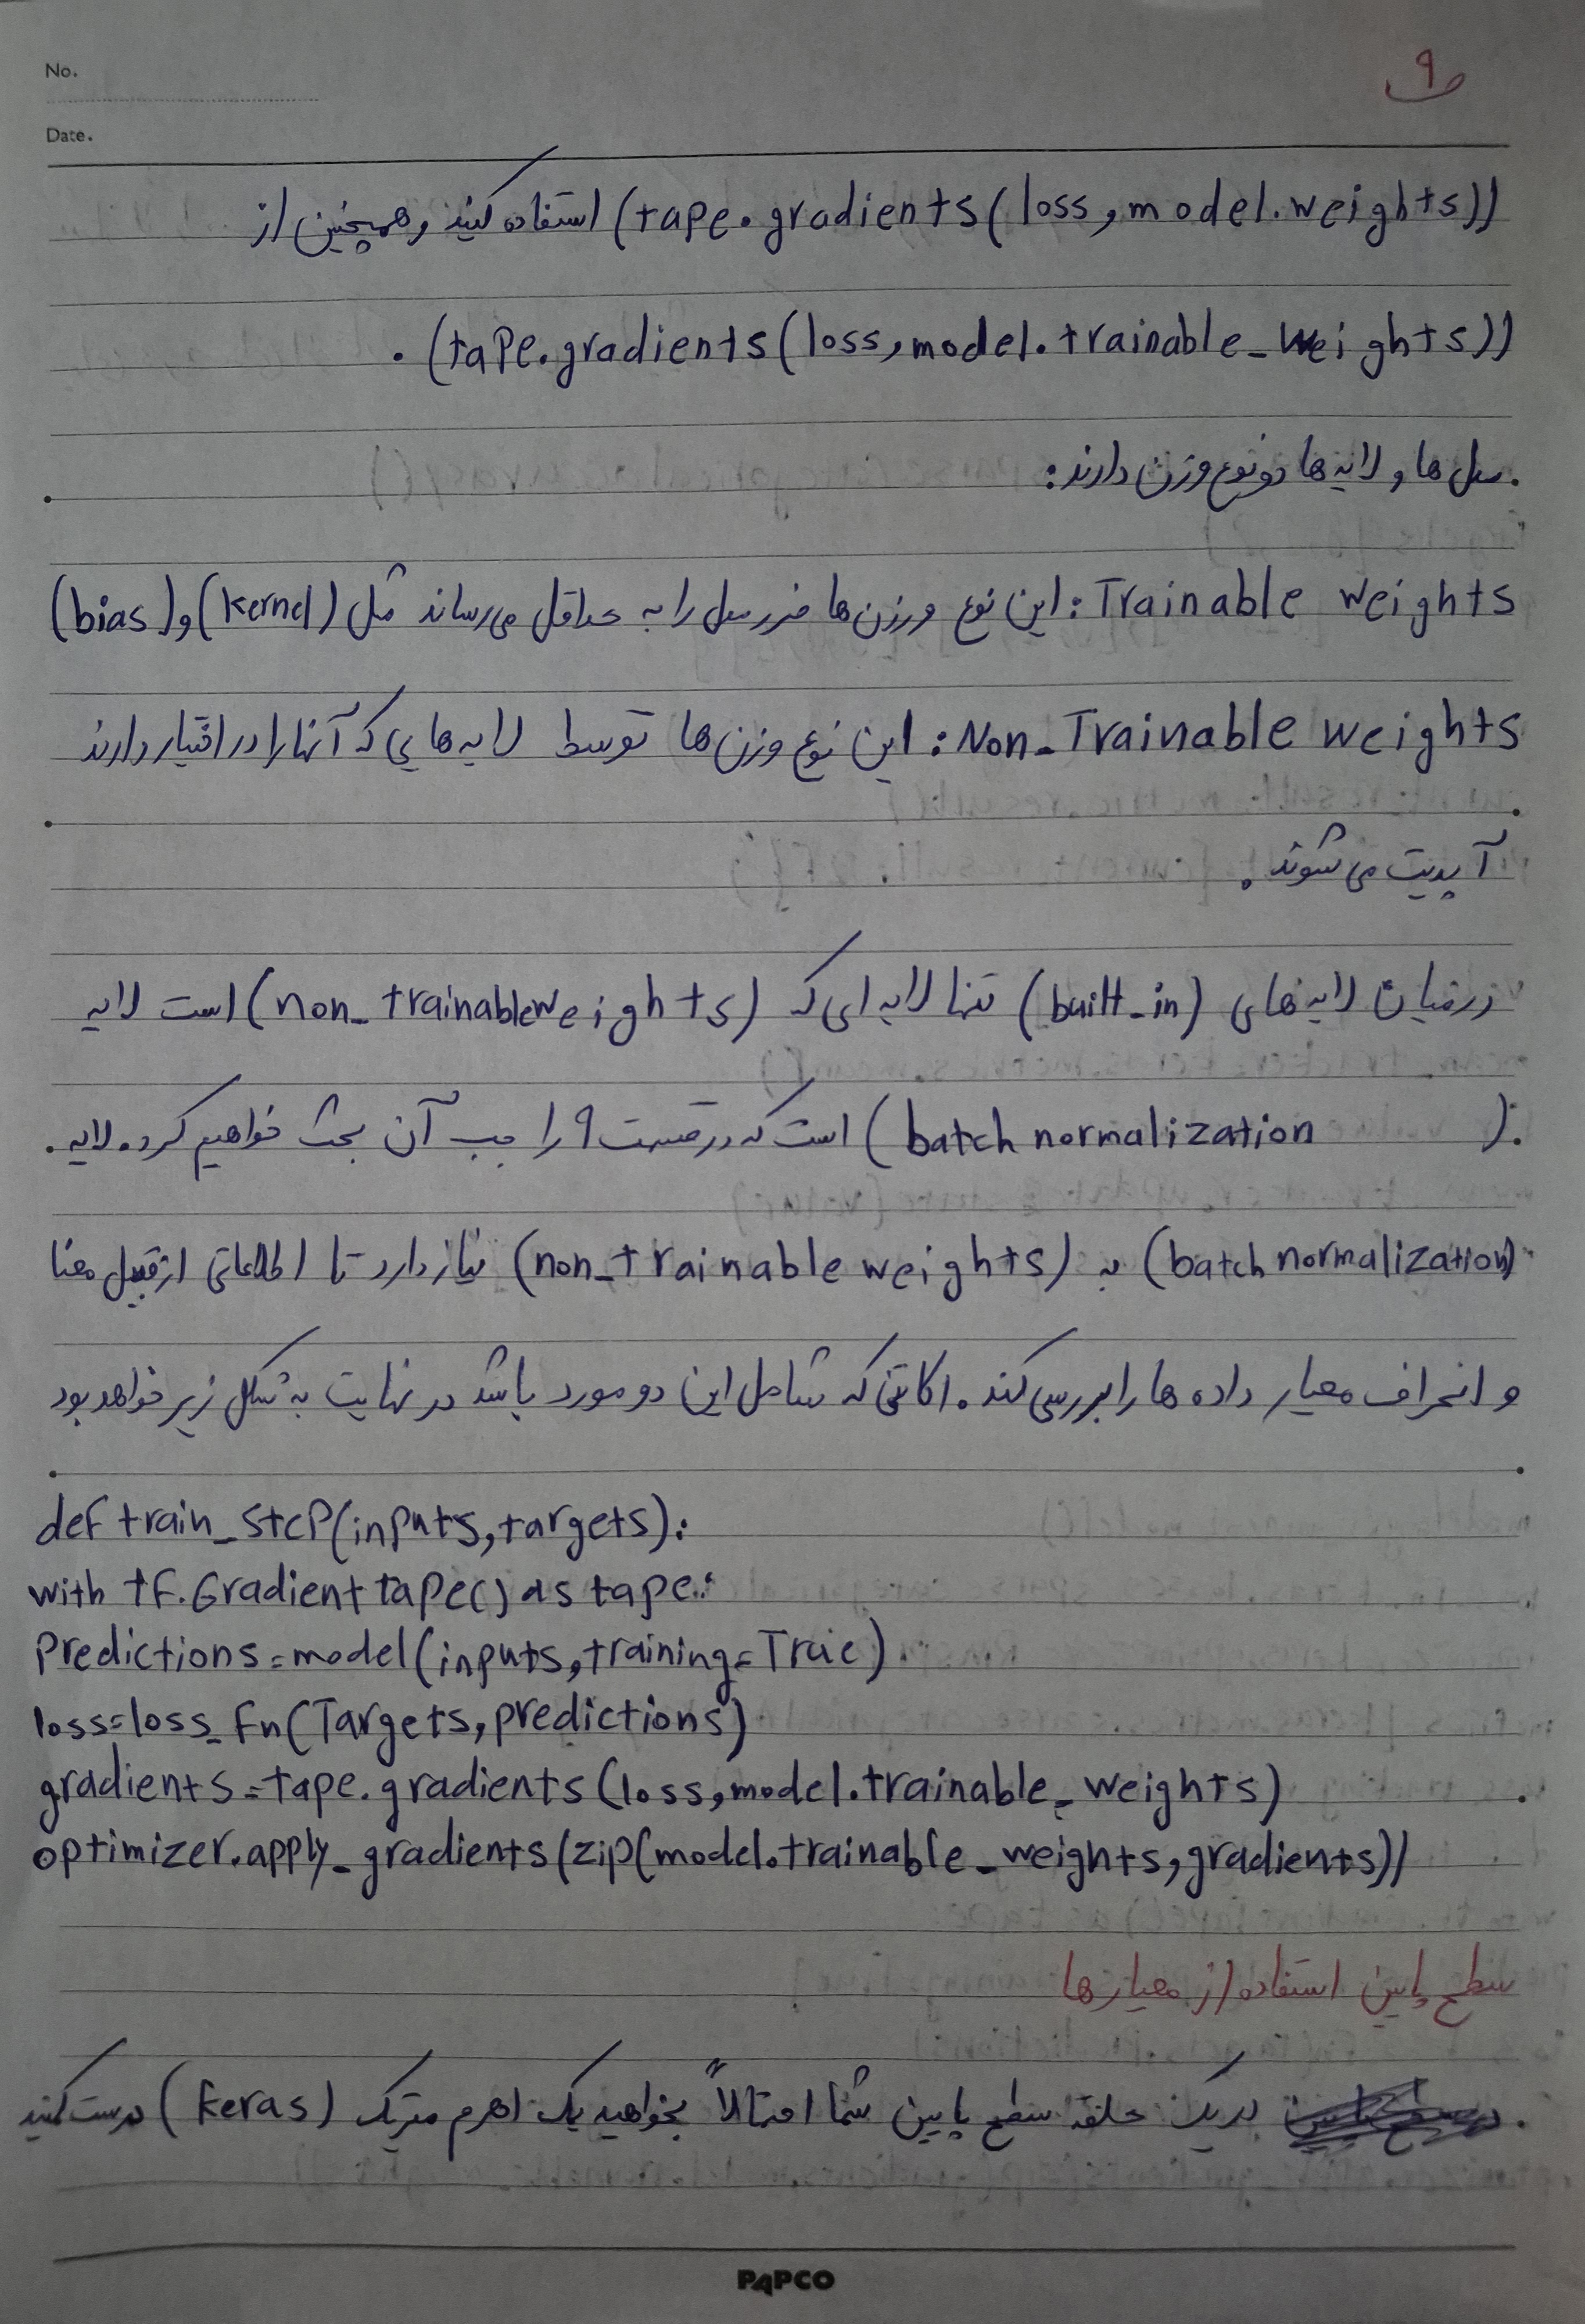 No.
۹
Date.
(tape.gradients(loss,model.weights)) استفاده کنید و همچنین از
(tape.gradients(loss,model.trainable_weights)) .
مدل ها و لایه ها دو نوع وزن دارند:
Trainable weights : این نوع وزن ها ضرر مدل را به حداقل می رساند مثل (kernel) و (bias)
Non_Trainable weights : این نوع وزن ها توسط لایه هایی که آنها را در اختیار دارند
آپدیت می شوند .
در میان لایه های (built_in) تنها لایه ای که (non_trainableweights) است لایه
(batch normalization) است که در قسمت ۹ راجب آن بحث خواهیم کرد. لایه
(batch normalization) به (non_trainable weights) نیاز دارد تا اطلاعاتی از قبیل معنا
و انحراف معیار داده ها را بررسی کند . اکانتی که شامل این دو مورد باشد در نهایت به شکل زیر خواهد بود
def train_step(inputs,targets):
with tf.Gradient tape() as tape:
Predictions=model(inputs,training=True)
loss=loss_fn(Targets,predictions)
gradients=tape.gradients(loss,model.trainable_weights)
optimizer.apply_gradients(zip(model.trainable_weights,gradients))
سطح پایین استفاده از معیار ها
در یک حلقه سطح پایین شما احتمالاً بخواهید یک اهرم متریک (keras) درست کنید
PAPCO